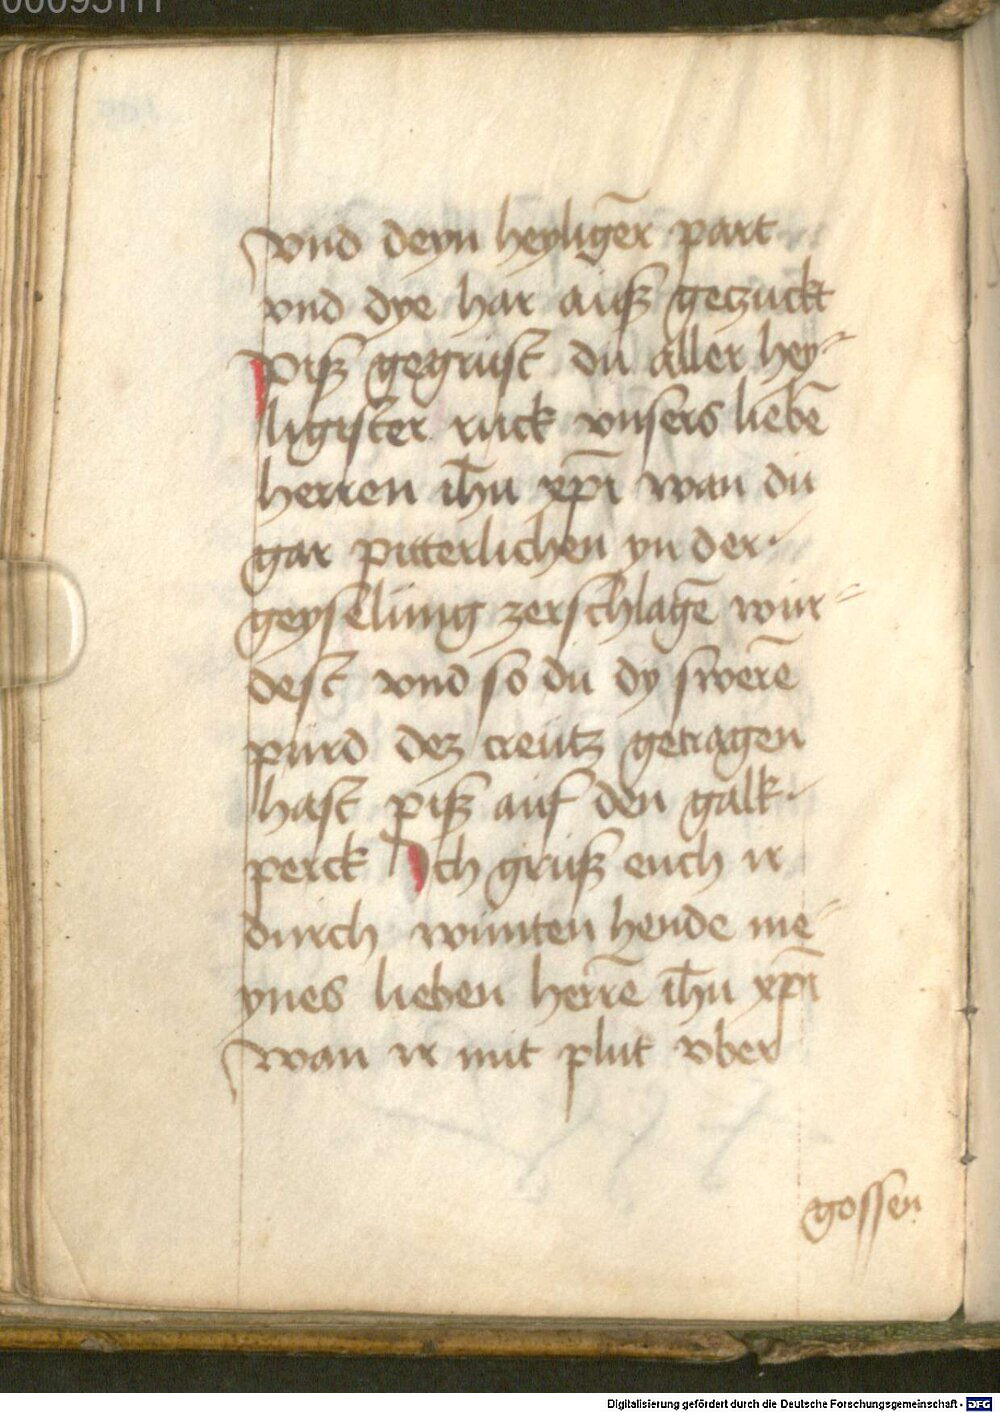 vnd deyn heyligēr part
vnd dye har auß geczuckt
piß gegrüst du aller hey⸗
ligister rück vnsers liebē
herren ih̄u xp̄i wan du
gar pitterlichen yn der
geyselung zerschlagē wur⸗
dest vnd so du dy swerē
pürd dez creütz getragen
hast piß auf den galk
perck Ich grüß euch ir
durch wunten hende me⸗
ynes lieben herrē ih̄u xp̄i
wan ir mit plut vber
gossen
Digitalisierung gefördert durch die Deutsche Forschungsgemeinschaft - DFG